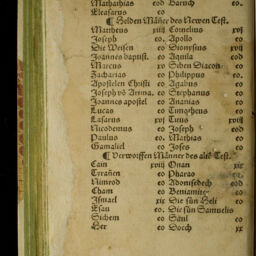 Mathathias eod Baruch eo.
Eleasarus eo
¶ Helden Mäñer des Newen Test.
Mattheus xiiij Cornelius xvj
Joseph eo. Apollo eo
Die Weisen eo Dionysius xvij
Joannes baptist. eo Aquila eod
Marcus xv Siben Diacon eo
Zacharias eo Philippus eo.
Apostelen Christi eo Agabus eo
Joseph võ Arema. eo Stephanus eo
Joannes apostel eo Ananias eo
Lucas eo Timotheus eo
Lasarus xvj Titus xviij
Nicodemus eo Joseph eod
Paulus eo. Mathias eo
Gamaliel eo Joses eo
¶ Verworffen Männer des altẽ Test.
Cain xviij Onan xix
Tirañen eo Pharao
Nimrod eo Adonisedech eod
Cham eo Beniamiter eo
Ismael xix Die sün Heli eo
Esau eo. Die sün Samuelis
Sichem eo Saul eo
Her eo Doech xx